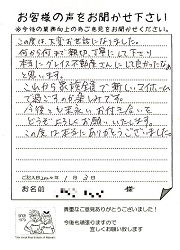 お客様の声をお聞かせ下さい
※今後の業務向上の為ご意見をお聞かせください。
この度は大変お世話になりました。
何から何まで親切、丁寧にして下り
本当にグレイス不動産さんにして良かったな
と思います。
これから家族全員で新しいマイホーム
で過ごすのが楽しみです。
今後とも末永いお付き合いを
どうぞよろしくお願いいたします。
この度は本当にありがとうございました。
1月3日
お名前
様
貴重なご意見ありがとうございました！
今後も頑張りますので
宜しくお願い致します